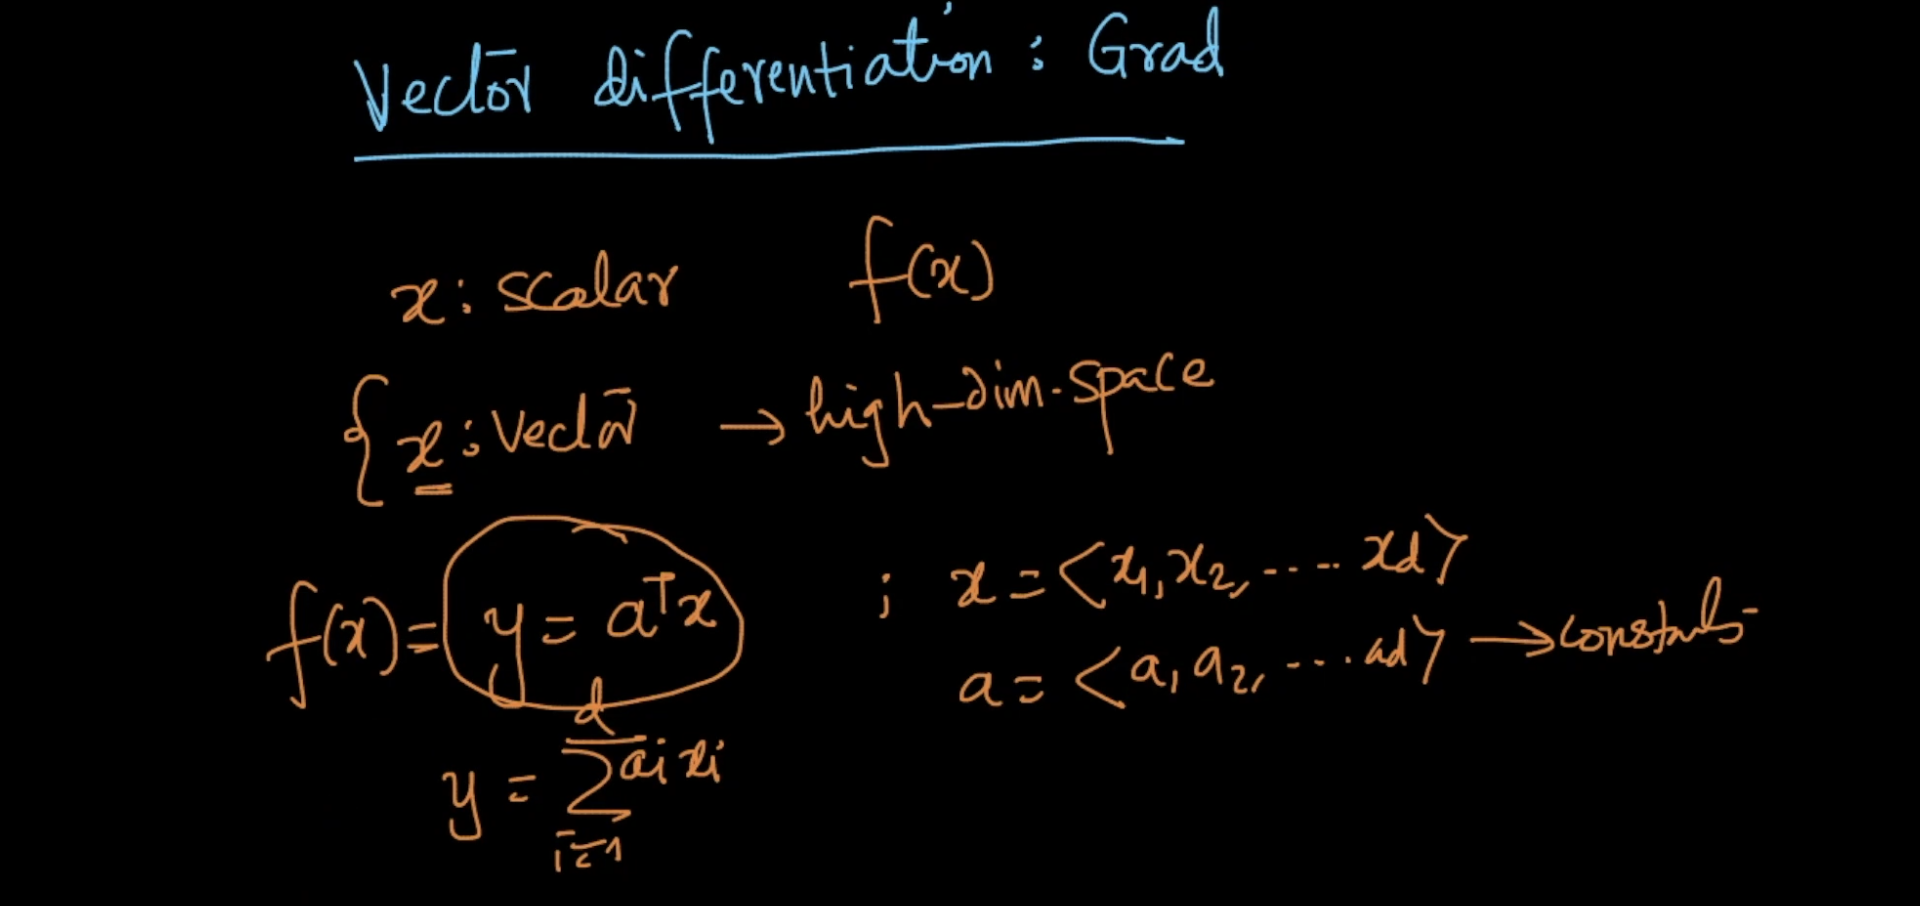 Vector differentiation : Grad
x : scalar f(x)
{ x : Vector → high-dim. space
f(x) = y = aᵀx ; x = <x₁, x₂, ..... xd>
a = <a₁ a₂, .... ad> → constants
y = Σ aᵢ xᵢ
d
i=1